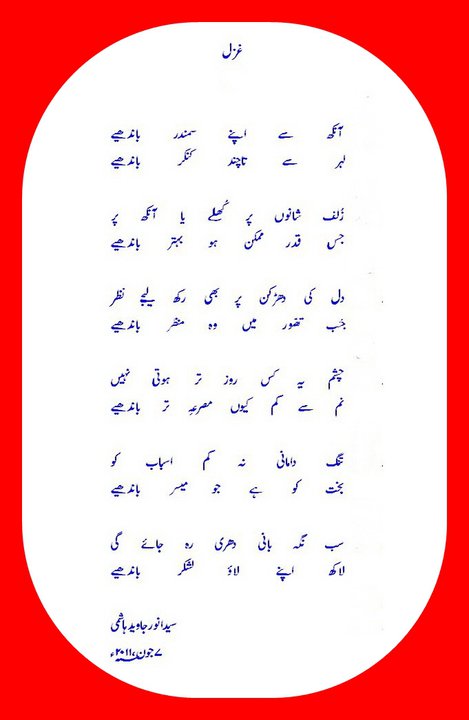 غزل
آنکھ سے اپنے سمندر باندھیے
لہر سے تاچند کنکر باندھیے
زُلف شانوں پر کُھلے یا آنکھ پر
جس قدر ممکن ہو بہتر باندھیے
دل کی دھڑکن پر بھی رکھ لیجے نظر
جَب تصّور میں وہ منظر باندھیے
چشم یہ کس روز تر ہوتی نہیں
نم سے کم کیوں مصرعہِ تر باندھیے
تنگ دامانی نہ کم اسباب کو
بخت کو ہے جو میسر باندھیے
سب نگہ بانی دھری رہ جائے گی
لاکھ اپنے لاؤ لشکر باندھیے
سیدانورجاویدہاشمی
۷جون،۲۰۱۱ء